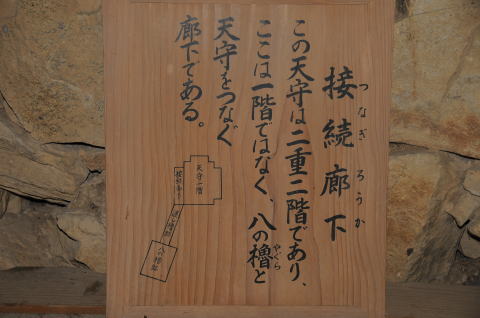 接続廊下
つなぎろうか
この天守は二重二階であり、
ここは一階ではなく、八の櫓と
やぐら
天守をつなぐ
廊下である。
天守一階
八の櫓